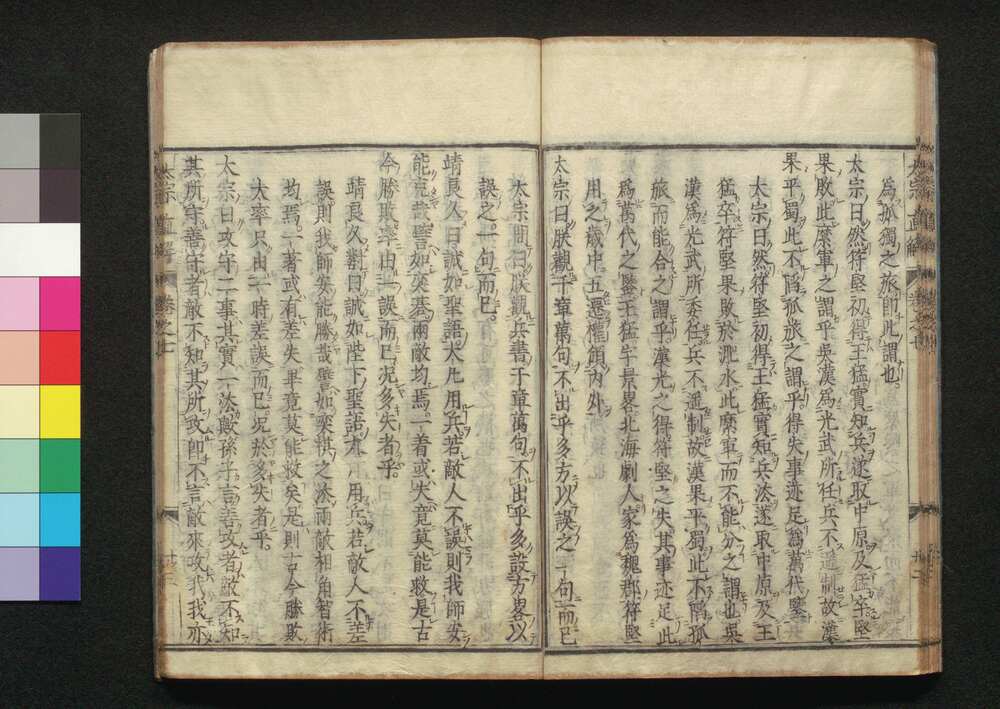 為孤獨之旅即此謂也
太宗曰然符堅初得王猛實知兵遂取中原及猛卒堅
果敗此縻軍之謂乎吳漢為光武所任兵不遥制故漢
果平蜀此不陷孤旅之謂乎得失事迹足為萬代鑒
太宗曰然符堅初得王猛實知兵法遂取中原及王
猛卒符堅果敗於淝水此縻軍而不能分之謂也吳
漢為光武所委任兵不遥制故漢果平蜀此不陷孤
旅而能合之謂乎漢光之得符堅之失其事迹足此
為萬代之鑒王猛字景畧北海劇人家為魏郡符堅
用之歲中五遷權傾内外
太宗曰朕觀千章萬句不出乎多方以誤之一句而已
太宗問曰朕觀兵書千章萬句不出乎多設方畧以
誤之一句而已
靖良久曰誠如聖語大凡用兵若敵人不誤則我師安
能克哉譬如奕棊兩敵均焉一着或失竟莫能救是古
今勝敗率由一誤而已况多失者乎
靖良久對曰誠如陛下聖語大凡用兵若敵人不差
誤則我師安能勝哉譬如奕棋之法兩敵相角智術
均焉一著或有差失畢竟莫能救矣是則古今勝敗
大率只由一時差誤而已况於多失者乎
太宗曰攻守二事其實一法歟孫子言善攻者敵不知
其所守善守者敵不知其所攻即不言敵來攻我我亦